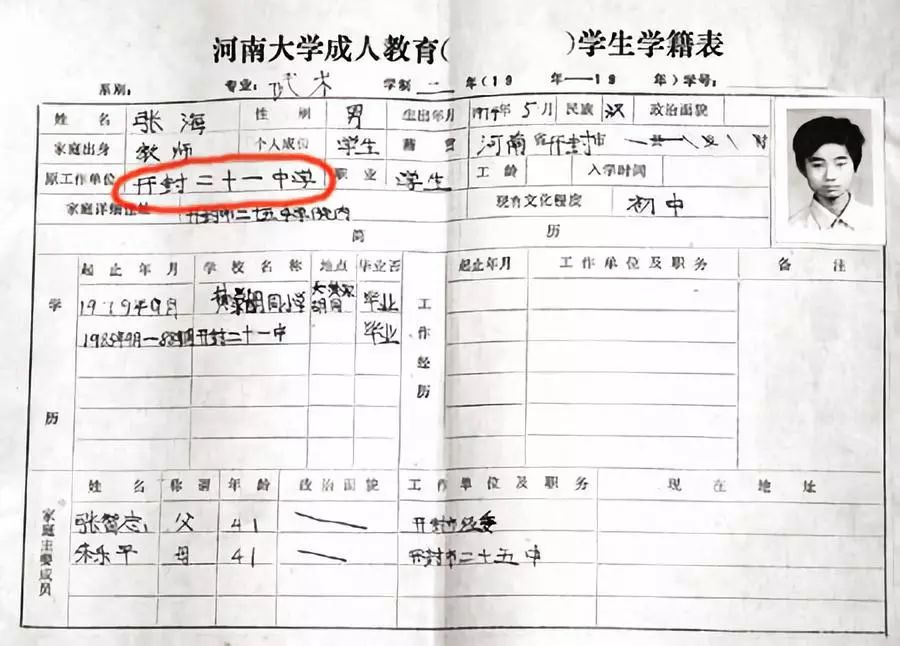 河南大学成人教育( )学生学籍表
系别: 专业: 武术 学制 二 年(19 年——19 年)学号:
姓名 张海 性别 男 生出年月 年5月 民族 汉 政治面貌
家庭出身 教师 个人成份 学生 籍贯 河南省开封市 县
原工作单位 开封二十一中学 职业 学生 工龄 入学时间
家庭详细住址 开封市二十五中家院内 现有文化程度 初中
简 历
学历 起止年月 学校名称 地点 毕业否 工作经历 起止年月 工作单位及职务 备注
1979年9月 胡同小学 胡同 毕业
开封二十一中 毕业
家庭主要成员 姓名 称谓 年龄 政治面貌 工作单位及职务 现在地址
张智忠 父 41 开封市经委
朱乐平 母 41 开封市二十五中